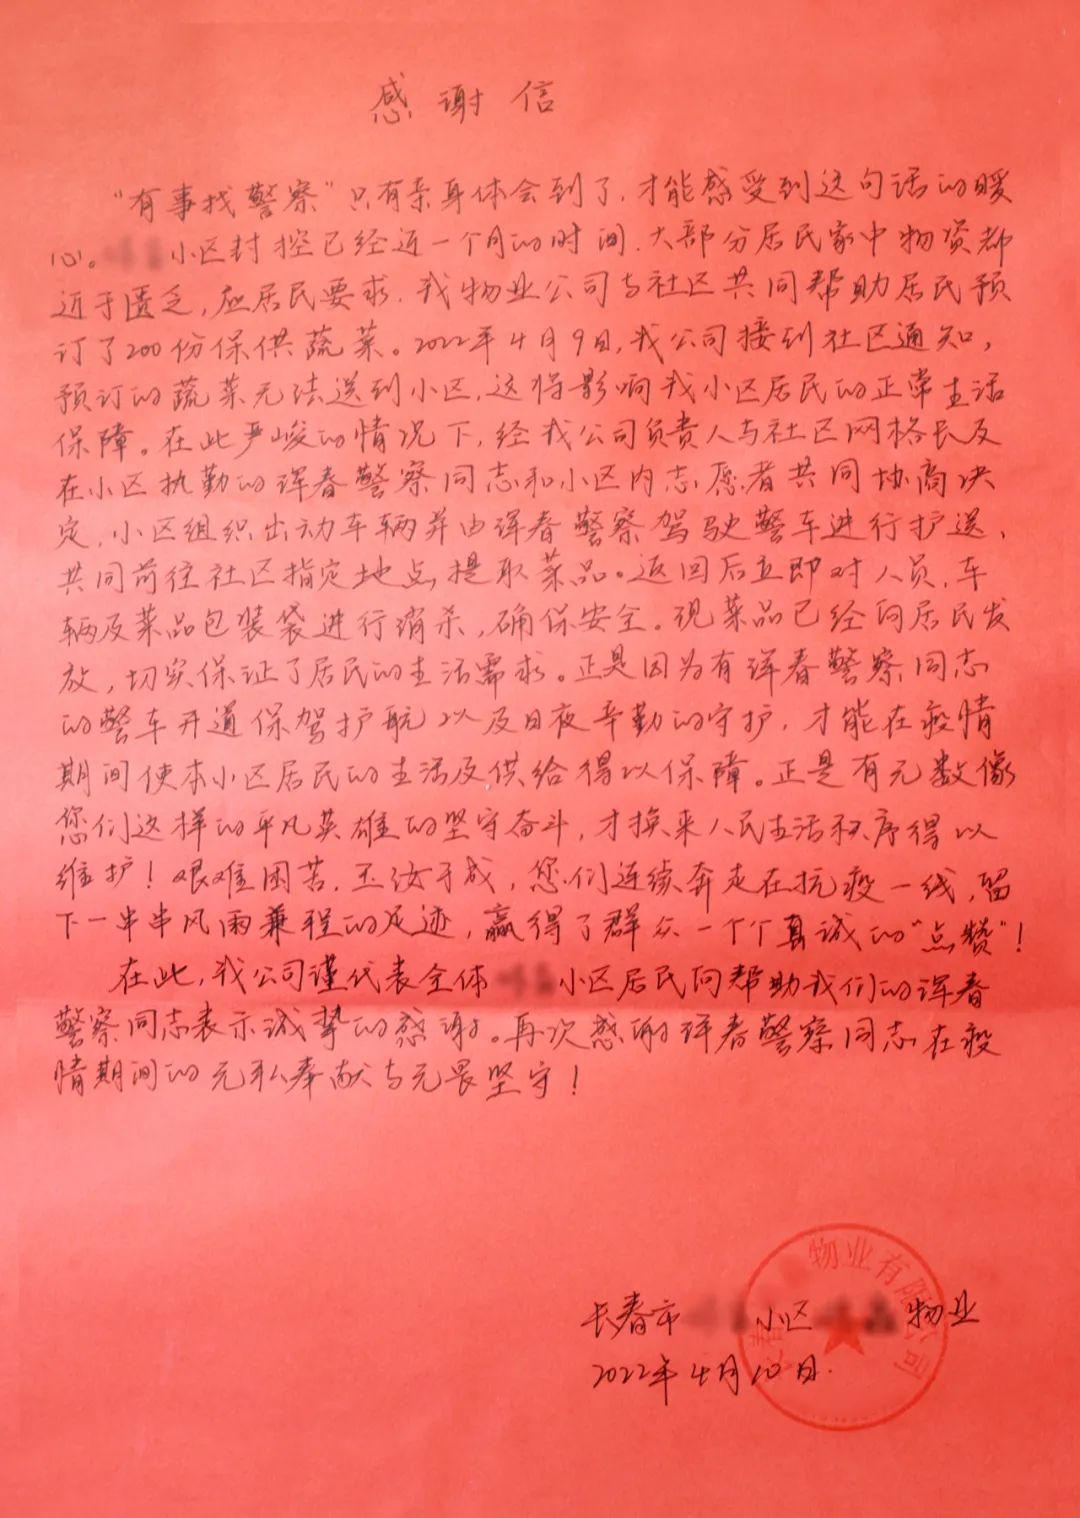 感谢信
“有事找警察”只有亲身体会到了，才能感受到这句话的暖
心。小区封控已经近一个月的时间，大部分居民家中物资都
近于匮乏，应居民要求，我物业公司与社区共同帮助居民预
订了200份保供蔬菜。2022年4月9日，我公司接到社区通知，
预订的蔬菜无法送到小区，这将影响我小区居民的正常生活
保障。在此严峻的情况下，经我公司负责人与社区网格长及
在小区执勤的珲春警察同志和小区内志愿者共同协商决
定，小区组织出动车辆并由珲春警察驾驶警车进行护送，
共同前往社区指定地点提取菜品。返回后立即对人员，车
辆及菜品包装袋进行消杀，确保安全。现菜品已经向居民发
放，切实保证了居民的生活需求。正是因为有珲春警察同志
的警车开道保驾护航以及日夜辛勤的守护，才能在疫情
期间使本小区居民的生活及供给得以保障。正是有无数像
您们这样的平凡英雄的坚守奋斗，才换来人民生活秩序得以
维护！艰难困苦，玉汝于成，您们连续奔走在抗疫一线，留
下一串串风雨兼程的足迹，赢得了群众一个个真诚的“点赞”！
在此，我公司谨代表全体小区居民向帮助我们的珲春
警察同志表示诚挚的感谢。再次感谢珲春警察同志在疫
情期间的无私奉献与无畏坚守！
物业有限公司
长春市小区物业
2022年4月10日.